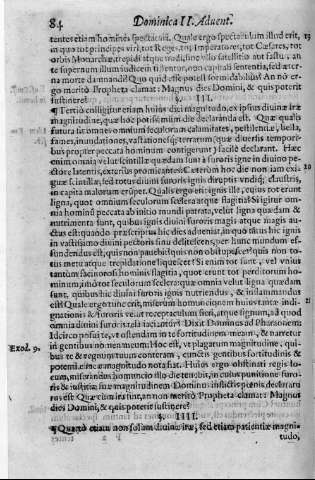 84 Dominica II. Aduent.
tentes etiam homines spectaculi. Quale ergo spectaculum illud erit,
in quo tot principes viri, tot Reges, tot Imperatores, tot Cæsares, tot
orbis Monarchæ, trepidi atque nudi, sine vllo satellitio astabunt, an
te supernum illum iudicem sistentur, quo capitali sententia, sed æter
na morte damnandi? Quo quid esse potest formidabilius? An nõ er-
go meritò Propheta clamat: Magnus dies Domini, & quis poterit
sustinere?
§. III.
¶ Tertiò colligitur etiam huius diei magnitudo, ex ipsius diuinæ iræ
magnitudine, quæ hoc potissimùm die declaranda est. Quæ qualis
futura sit omnes omnium seculorum calamitates, pestilentiæ, bella,
fames, inundationes, vastationesq; terrarum, quæ diuersis tempori-
bus propter peccata hominum contigerunt, facilè declarant. Hæc
enim omnia velut scintillæ quædam sunt à furoris igne in diuino pe-
ctore latentis, exterius promicantes. Cæterùm hoc die non iam exi-
guæ scintillæ, sed totus diuini furoris ignis diruptis vndiq; claustris,
in capita malorum erūpet. Qualis ergo erit ignis ille, cuius tot erunt
ligna, quot omnium seculorum scelera atque flagitia? Si igitur om-
nia hominū peccata ab initio mundi patrata, velut ligna quædam &
nutrimenta sunt, quibus ignis diuini furoris magis atque magis au-
ctus est quando præscriptus hic dies adueniat, in quo
in vastissimo diuini pectoris sinu delitescens, per hunc mundum ef-
fundendus est, quis non pauescit? quis non obstupescet? quis non to-
tus metu atque trepidatione liquescet? Si enim tot sunt, vel vnius
tantùm facinorosi hominis flagitia, quot erunt tot perditorum ho-
minum, imò tot seculorum scelera, quæ omnia velut ligna quædam
sunt, quibus hic diuini furoris ignis nutriendus, & inflammandus
est? Quale ergo tunc erit, miserum hominē cinerem huius tantæ indi-
gnationis & furoris velut receptaculum fieri, atque signum, ad quod
omnia diuini furoris tela iaciantur? Dixit Dominus ad Pharaonem:
Exod. 9. Idcirco posui te, vt ostendam in te fortitudinem meam, & narretur
in gentibus nomen meum: Hoc est, vt plagarum magnitudine, qui-
bus te & regnum tuum conteram, cunctis gentibus fortitudinis &
potentiæ meæ magnitudo nota fiat. Huius ergo obstinati regis lo-
cum, miserandus homuncio illo die tenebit, in cuius punitione furo-
ris & iustitiæ suæ magnitudinem Dominus iustis declaratu
rus est. Quæ cùm ita sint, an non meritò Propheta clamat: Magnus
dies Domini, & quis poterit sustinere?
§. IIII.
¶ Quartò etiam non solùm diuinæ iræ, sed etiam patientiæ magni-
tudo,